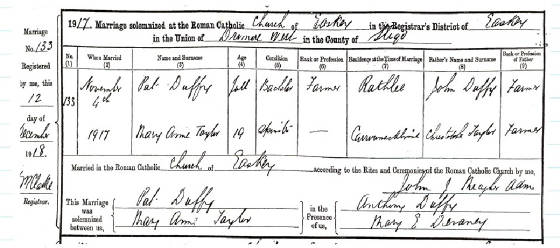 1917. Marriage solemnized at the Roman Catholic Church of Easkey in the Registrar's District of Easkey
in the Union of Dromore West in the County of Sligo
Marriage
No. 133
Registered
by me, this
12
day of
December
1918.
Registrar.
No. (1) When Married (2) Name and Surname (3) Age (4) Condition (5) Rank or Profession (6) Residence at the Time of Marriage (7) Father's Name and Surname (8) Rank or Profession of Father (9)
133 November 4th Pat Duffy Full Bachelor Farmer Rathlee John Duffy Farmer
1917 Mary Anne Taylor 19 Spinster — Taylor Farmer
Married in the Roman Catholic Church of Easkey according to the Rites and Ceremonies of the Roman Catholic Church by me,
John J Meagher Adm
This Marriage was solemnized between us,
Pat Duffy
Mary Anne Taylor
in the Presence of us,
Anthony Duffy
Mary E Devaney